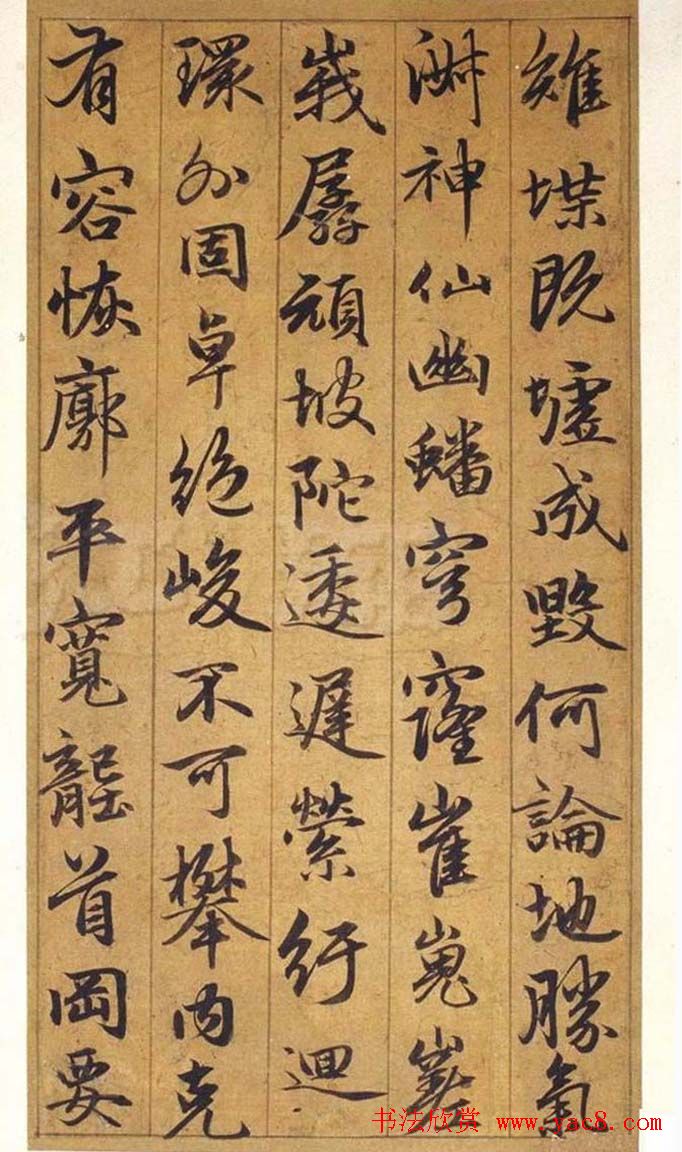 雉堞既墟成毀何論地勝氣
淋神仙幽蟠穹窿崔嵬嵳
峩孱頑坡陀逶遲縈紆迴
環外固卓絶峻不可攀内克
有容恢廓平寬龍首岡要
书法欣赏 www.yac8.com